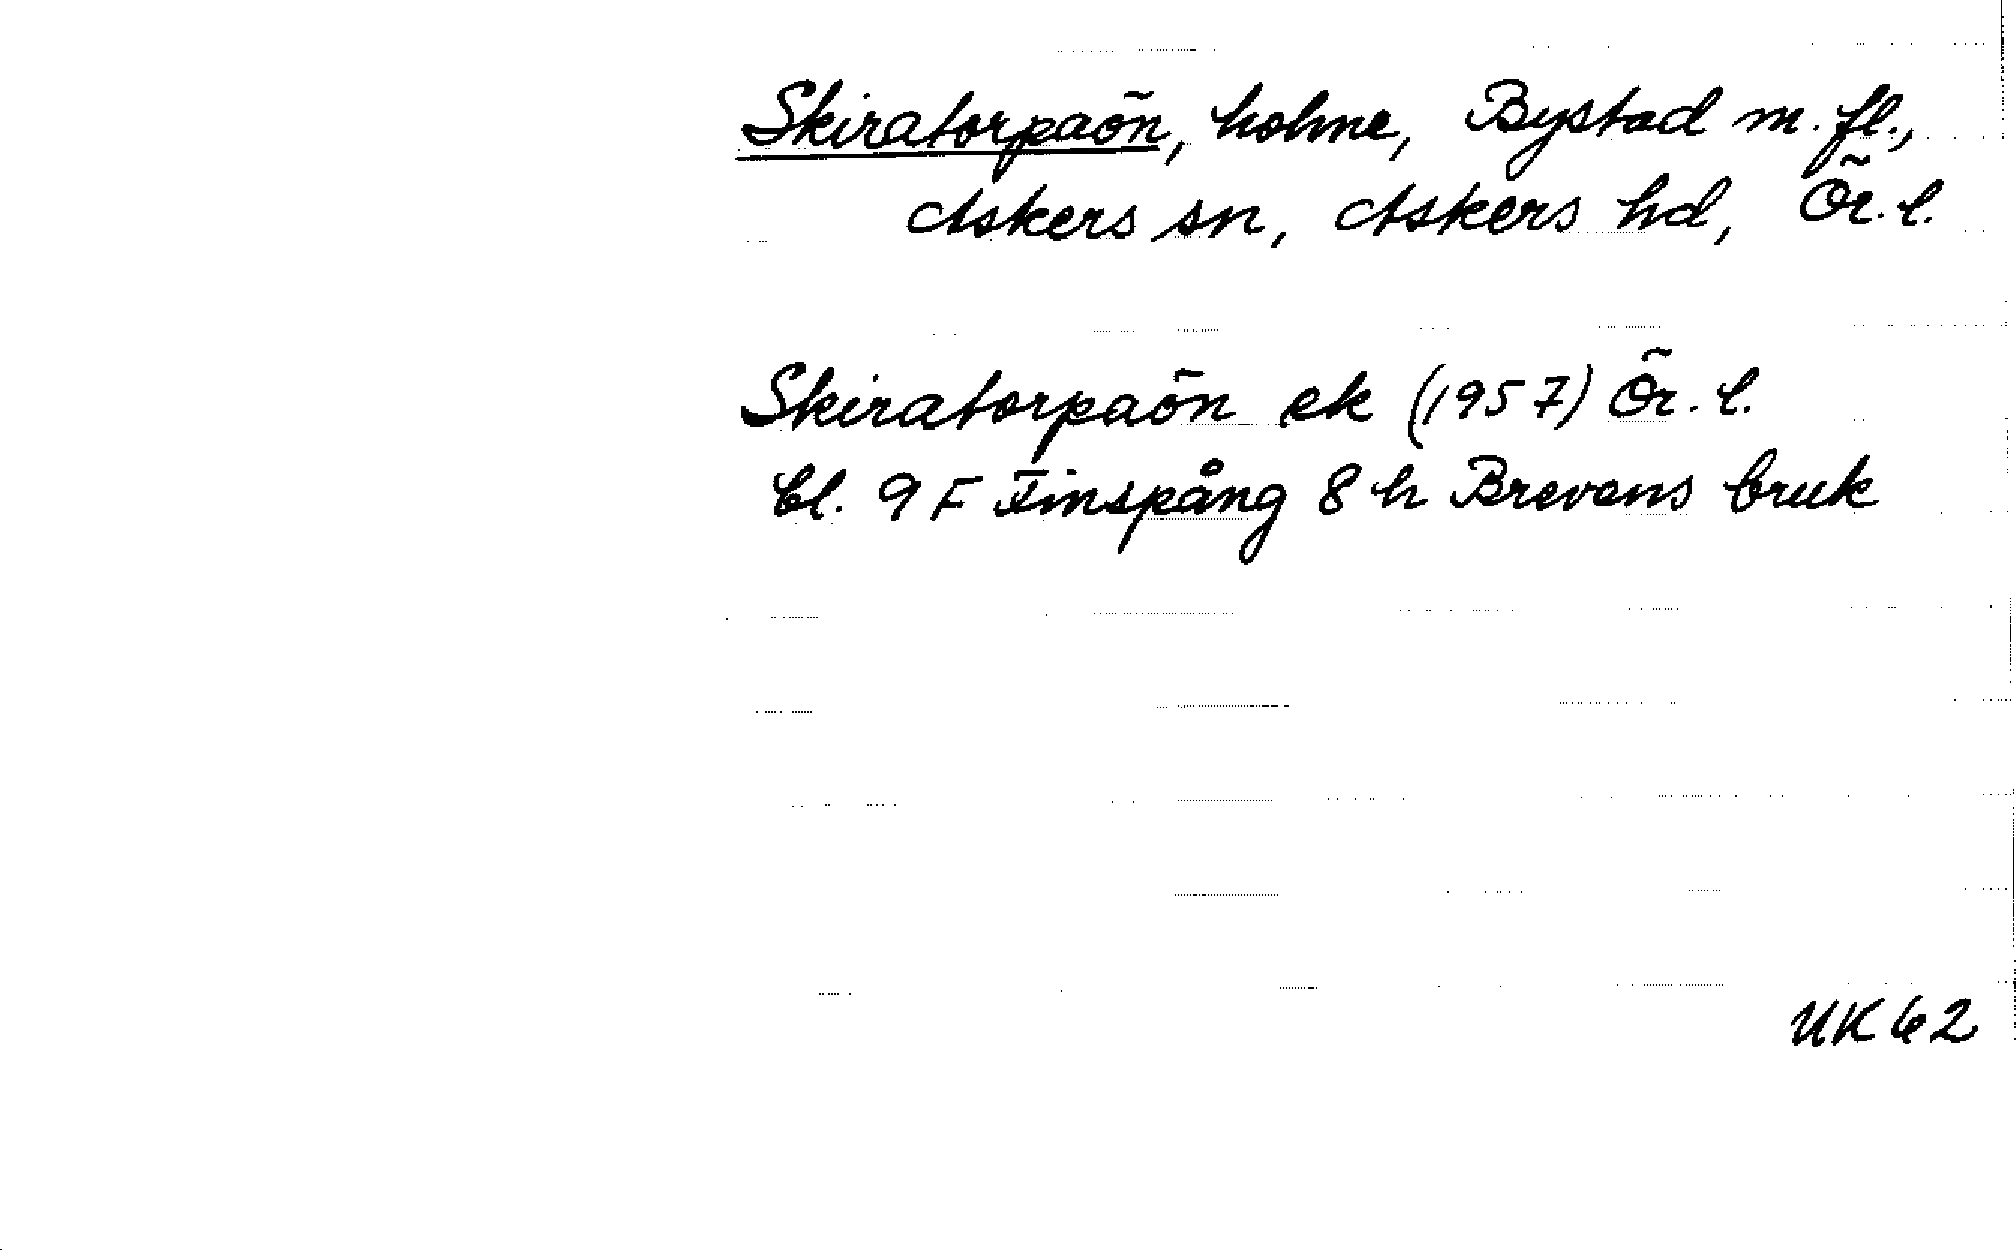 Skiratorpaön, holme, Bystad m. fl.,
Askers sn, Askers hd, Ör. l.
Skiratorpaön ek (1957) Ör. l.
bl. 9 F Finspång 8 h Brevens bruk
UK 62